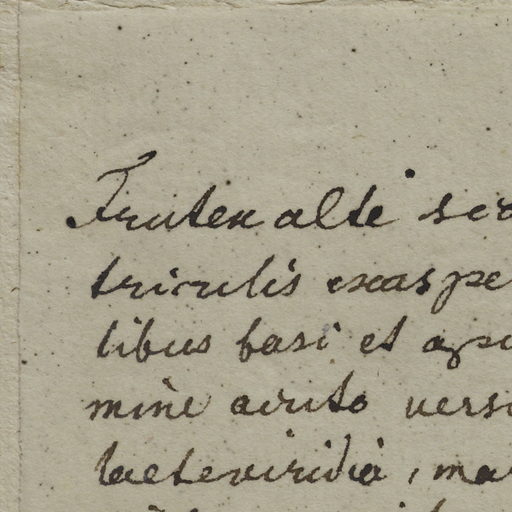 Frutex alte sca
triculis exaspe
libus basi et apic
mine acuto vers
laeteviridia, ma